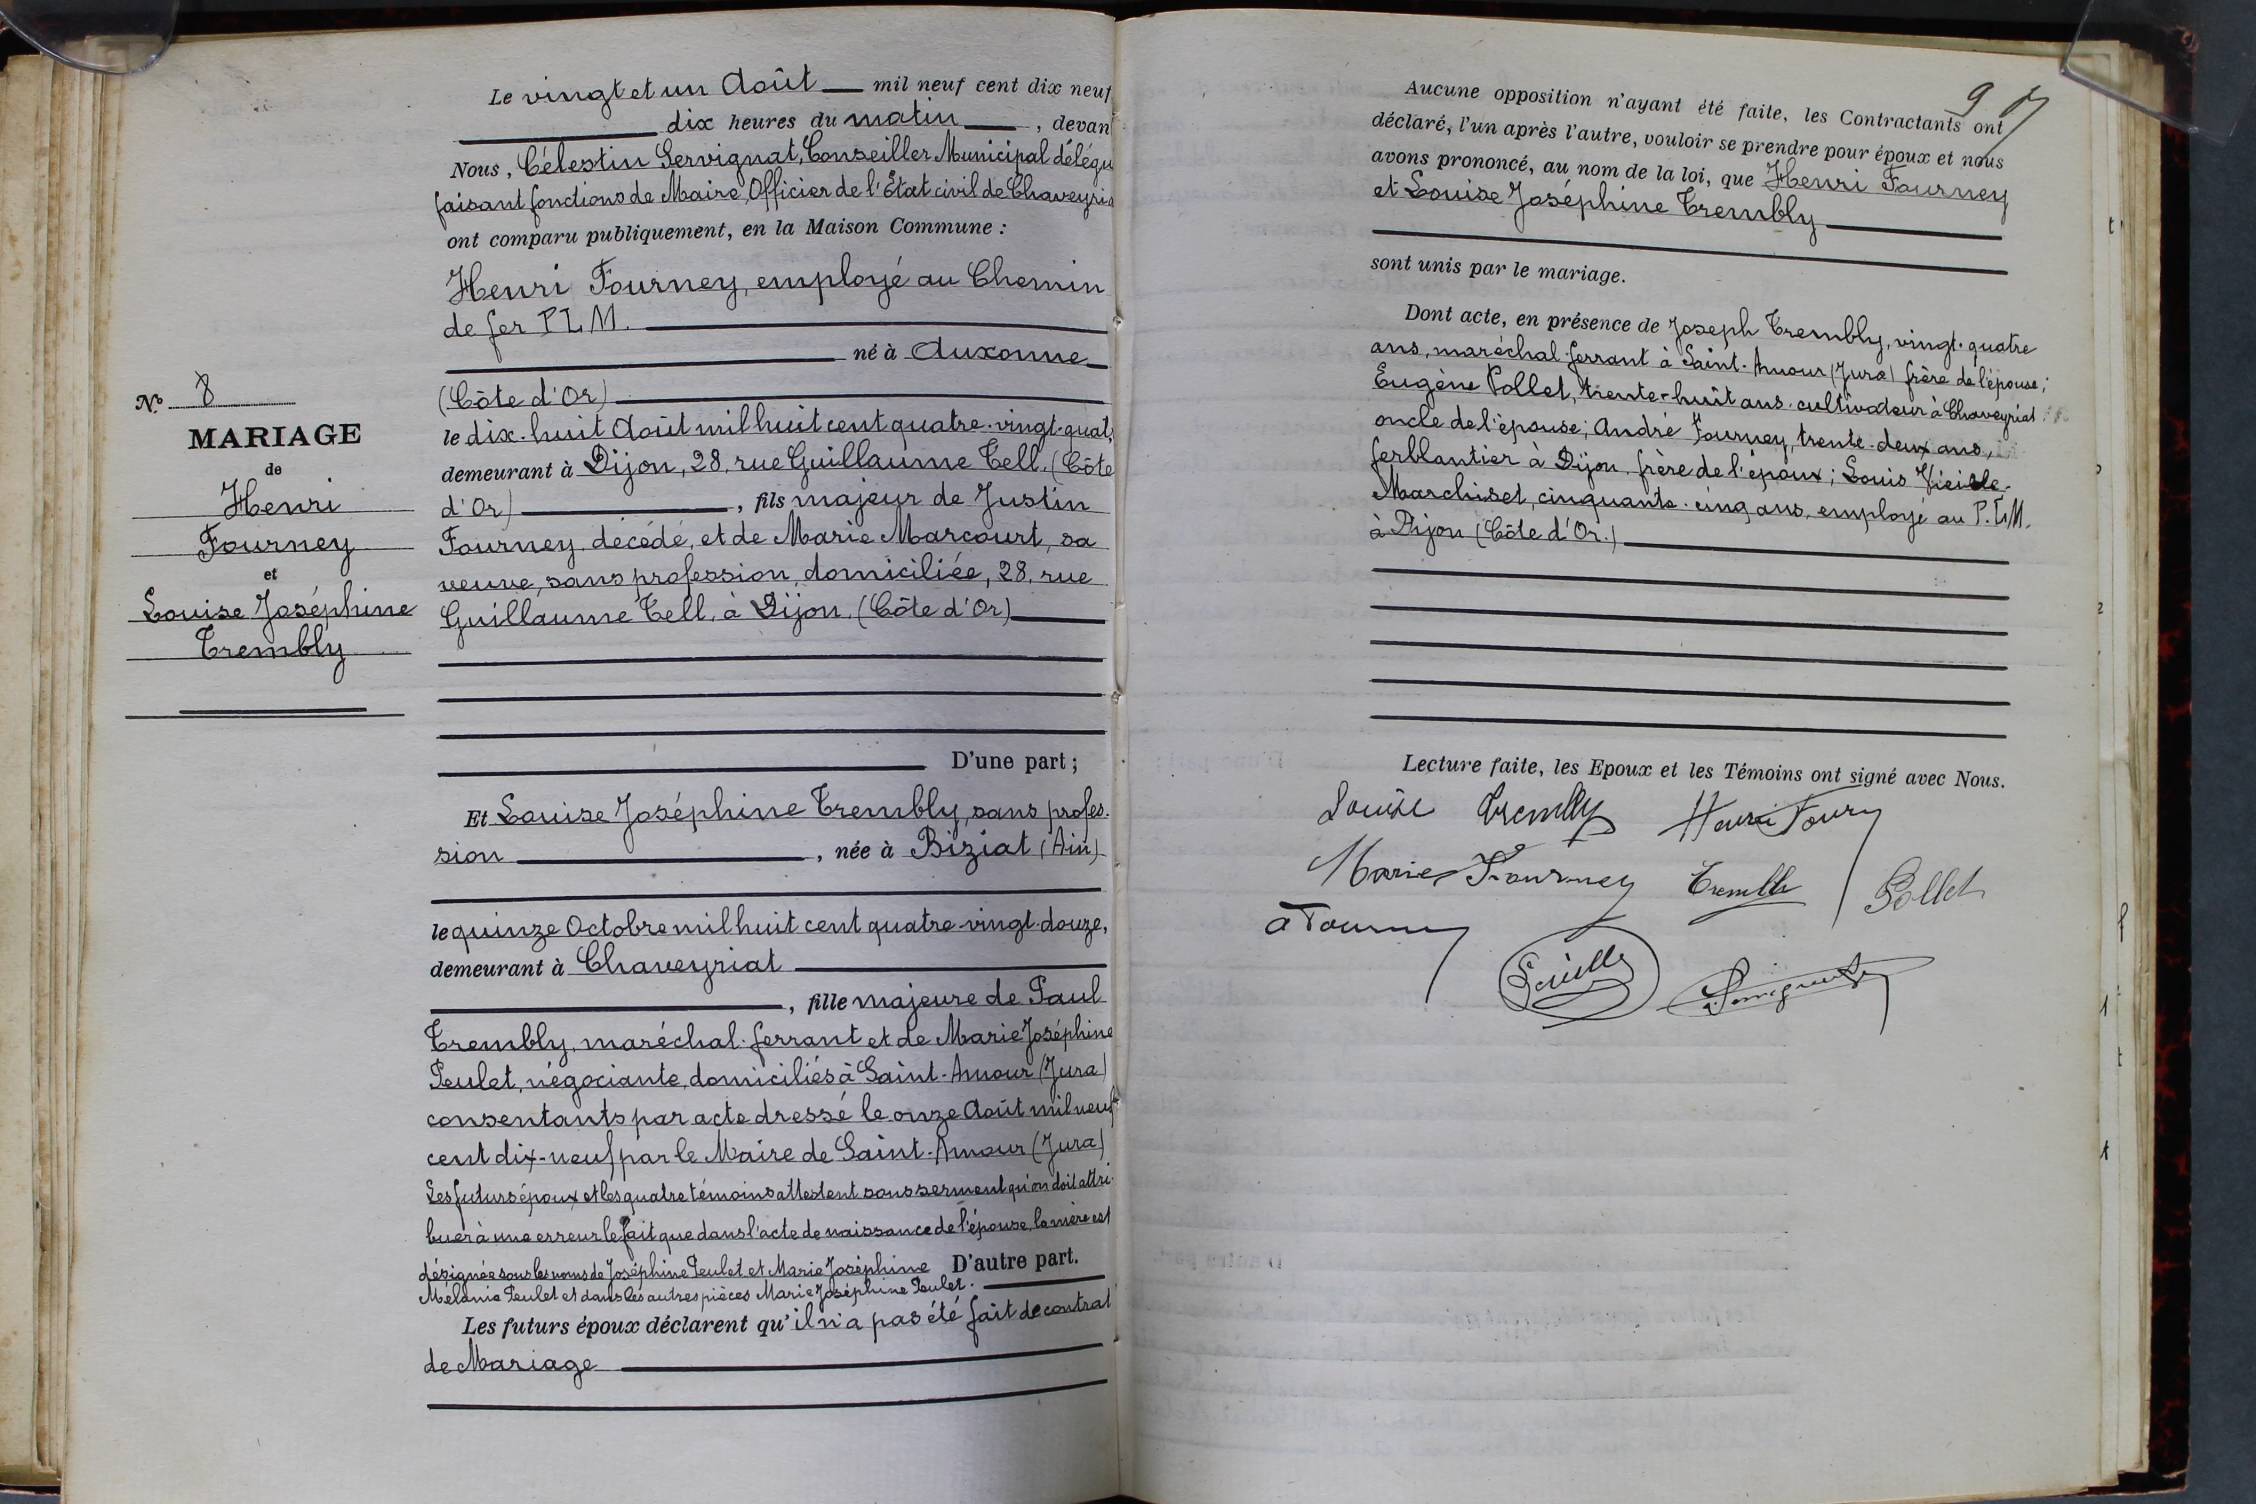 N.º 8
MARIAGE
de
Henri
Fourney
et
Louise Joséphine
Trembly
Le vingt et un Août mil neuf cent dix neuf
dix heures du matin, devan
Nous, Célestin Servignat, Conseiller Municipal délégu
faisant fonctions de Maire, Officier de l'État civil de Chaveyria
ont comparu publiquement, en la Maison Commune :
Henri Fourney, employé au Chemin
de fer P L M.
né à Auxonne
(Côte d'Or)
le dix-huit Août mil huit cent quatre-vingt-quat
demeurant à Dijon, 28, rue Guillaume Tell. (Côte
d'Or), fils majeur de Justin
Fourney, décédé, et de Marie Marcourt, sa
veuve, sans profession, domiciliée, 28, rue
Guillaume Tell, à Dijon, (Côte d'Or)
D'une part ;
Et Louise Joséphine Trembly, sans profes-
sion, née à Biziat (Ain)
le quinze Octobre mil huit cent quatre-vingt-douze,
demeurant à Chaveyriat
, fille majeure de Paul
Trembly, maréchal-ferrant et de Marie Joséphine
Peulet, négociante, domiciliés à Saint-Amour (Jura)
consentants par acte dressé le onze Août mil neuf
cent dix-neuf par le Maire de Saint-Amour (Jura)
Les futurs époux et les quatre témoins attestent sous serment qu'on doit attri-
buer à une erreur le fait que dans l'acte de naissance de l'épouse, la mère est
désignée sous les noms de Joséphine Peulet et Marie Joséphine D'autre part.
Mélanie Peulet et dans les autres pièces Marie Joséphine Peulet.
Les futurs époux déclarent qu'il n'a pas été fait de contrat
de Mariage
9
Aucune opposition n'ayant été faite, les Contractants ont
déclaré, l'un après l'autre, vouloir se prendre pour époux et nous
avons prononcé, au nom de la loi, que Henri Fourney
et Louise Joséphine Trembly
sont unis par le mariage.
Dont acte, en présence de Joseph Trembly, vingt-quatre
ans, maréchal-ferrant à Saint-Amour (Jura) frère de l'épouse ;
Eugène Pollet, trente-huit ans, cultivateur à Chaveyriat
oncle de l'épouse ; André Fourney, trente-deux ans,
ferblantier à Dijon, frère de l'époux ; Louis Vieille-
Marchiset, cinquante-cinq ans, employé au P.L.M.
à Dijon (Côte d'Or.)
Lecture faite, les Epoux et les Témoins ont signé avec Nous.
Louise Trembly Henri Fourny
Marie Fourney Trembly Pollet
A Fourney
Servignat